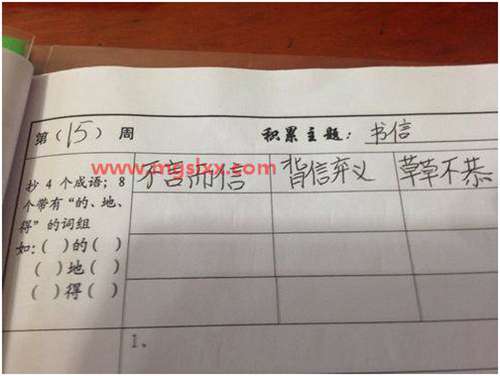 第（15）周 积累主题：书信
www.mgslxx.com
抄4个成语；8个带有“的、地、得”的词组
不言而信 背信弃义 草草不恭
如：（ ）的（ ）
（ ）地（ ）
（ ）得（ ）
1、